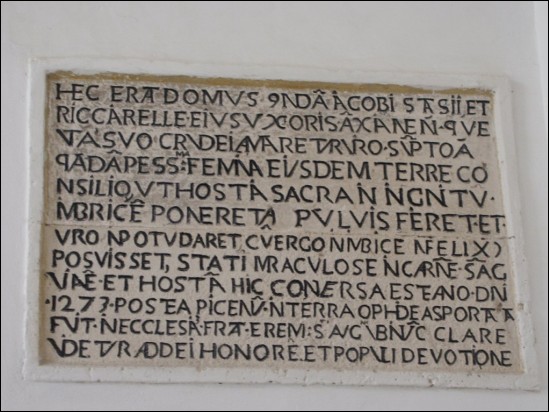 HEC ERAT DOMVS 9NDÃ IACOBI STASII ET
RICCARELLE EIVS VXORIS ÃXANEÑ QVE
VT A SVO CRVDEI AMARETVR VRO
ꝖADÃ PESSᴹᴬ FEMINA EIVSDEM TERRE CO
NSILIO VT HOSTIÃ SACRAÑ IN IGNI TV
MBRICẼ PONERET ET A PVLVIS FIERET ET
VRO POTV DARET CV ERGO IN IMBICE INFELIX
POSVISSET, STATĨ MIRACVLOSE IN CARÑE SÃG
VIÑE ET HOSTIÃ HIC CONERSA EST ANO DNI
·1273· POSTEA PICENV IN TERRA OPHIDE ASPORTATA
FVIT IN ECCLESIA FRAT EREM S AVG VBI NVC CLARE
VIDETVR AD DEI HONORẼ ET POPVLI DEVOTIONE